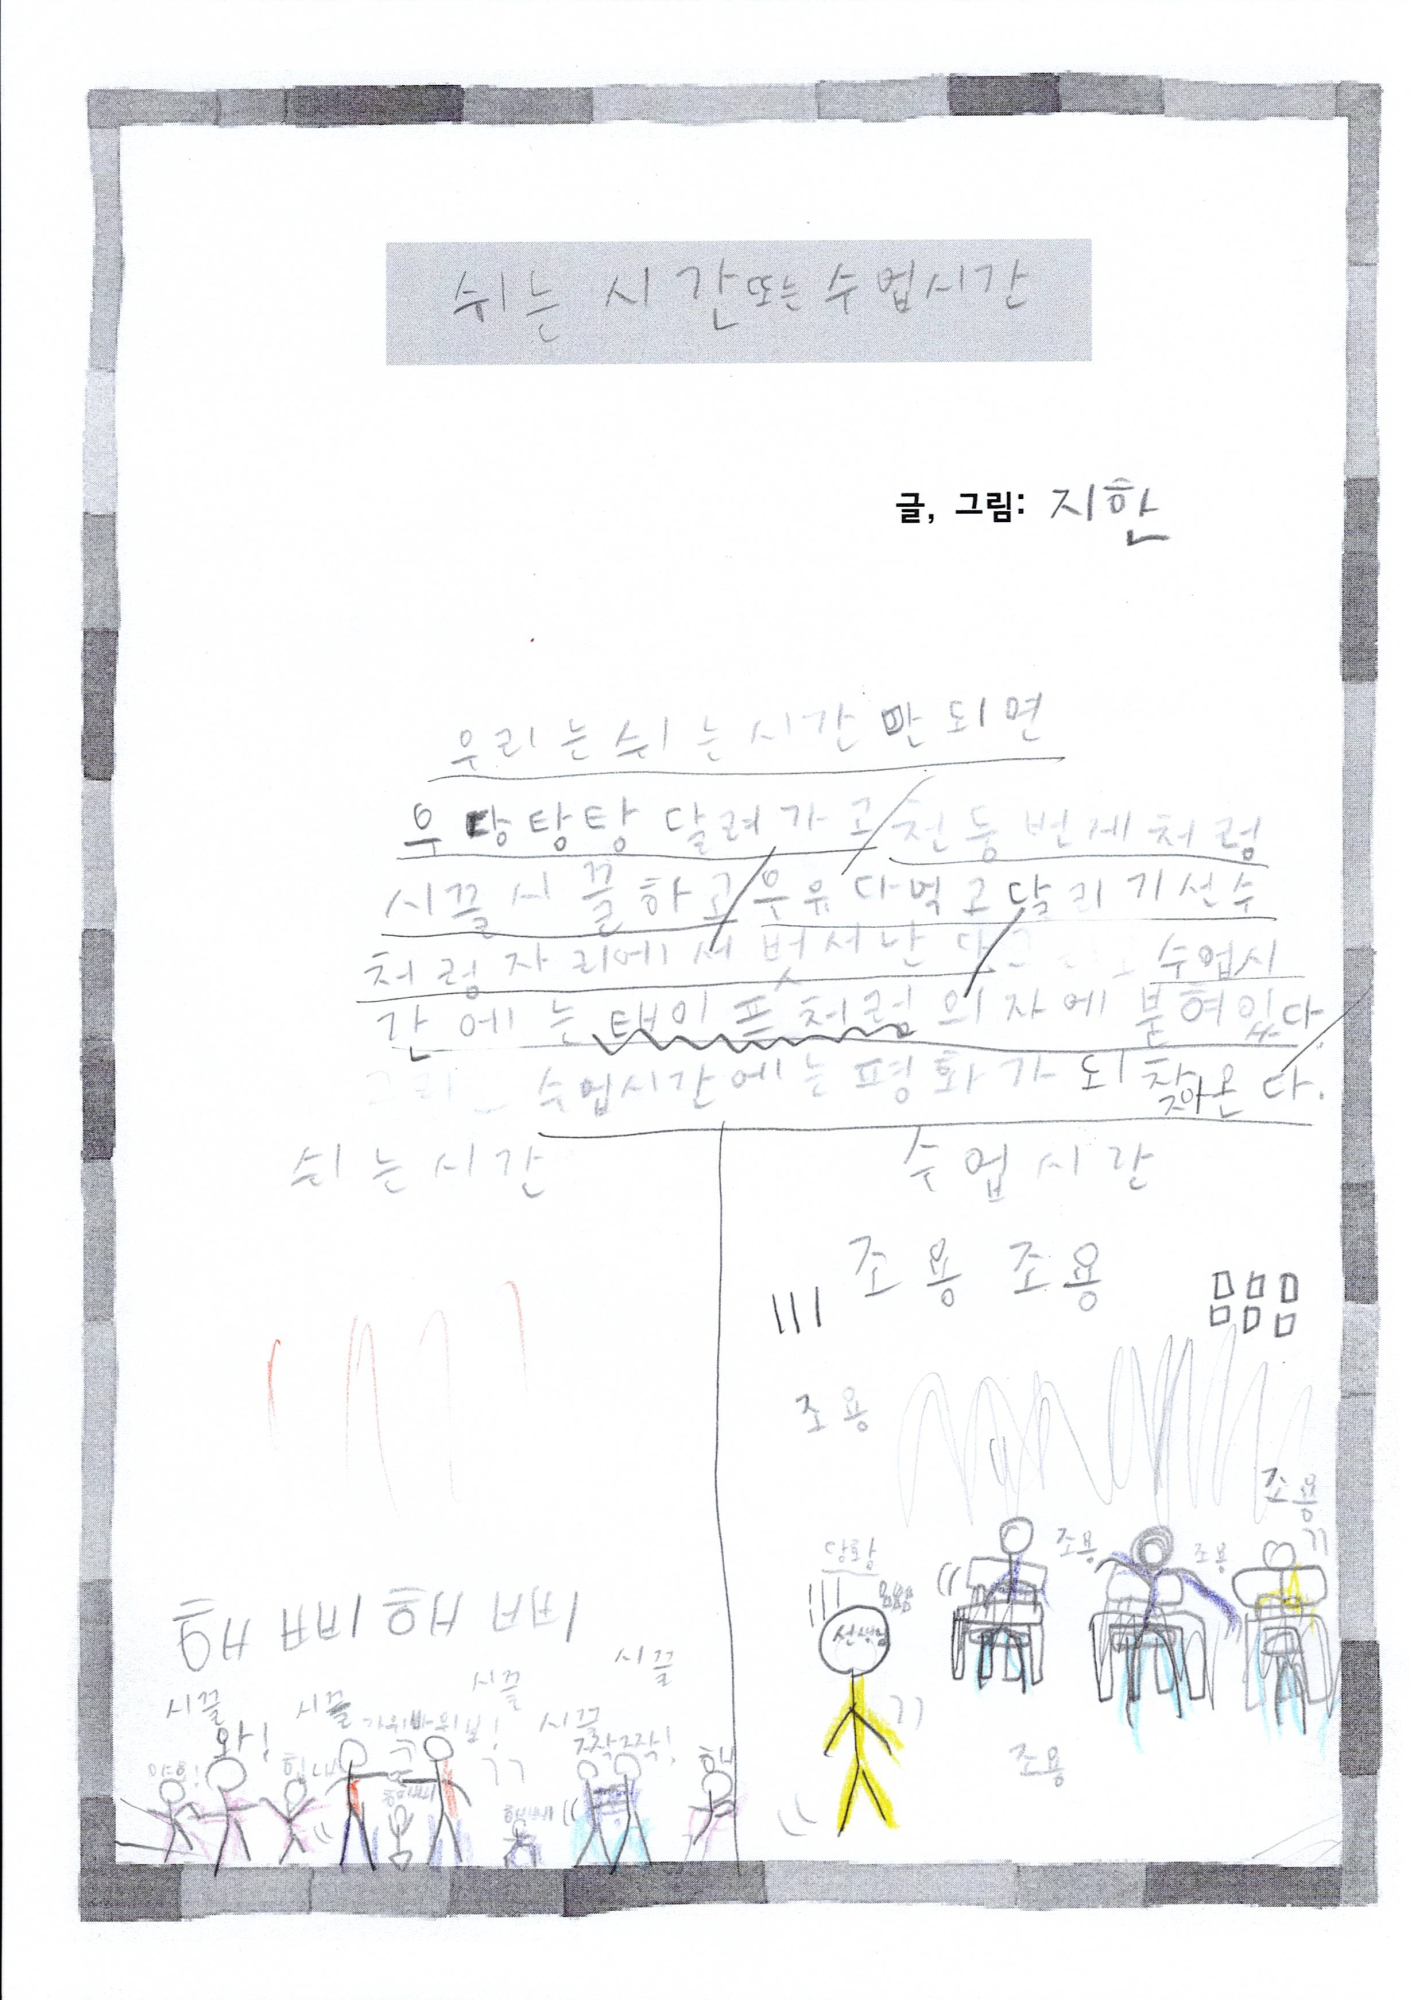 쉬는 시간또는 수업시간
글, 그림: 지한
우리는쉬는시간 만 되면
우당탕탕 달려가고 천둥번게처럼
시끌시끌하고 우유 다먹고 달리기선수
처럼자리에서 벗서난다 수업시
간에는 태이프처럼 의자에 붙혀있다.
수업시간에는 평화가 되찾아온다.
쉬는시간
수업시간
조용 조용
조용
조용
당황
조용
조용
선생님
ㄱㄱ
ㄱㄱ
조용
시끌
시끌
시끌
시끌
시끌
와!
가위바위보!
ㄱㄱ